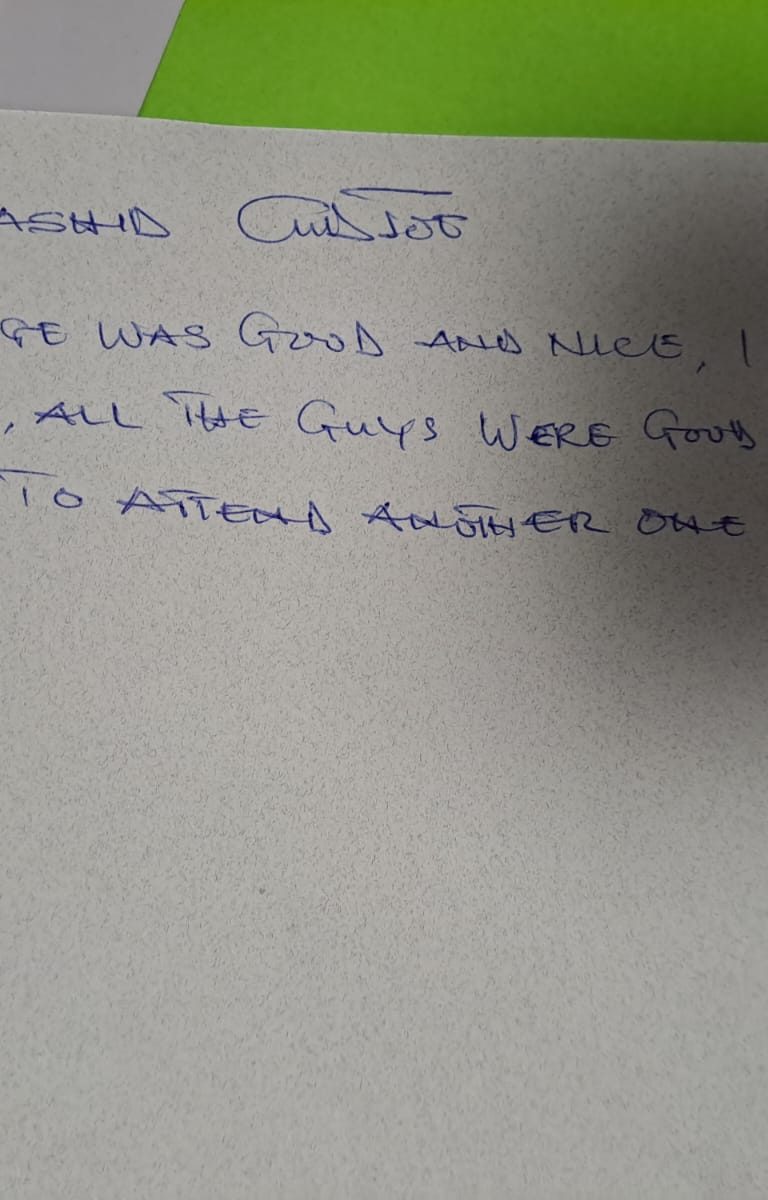 ASHID CUDJOE
GE WAS GOOD AND NICE, I
, ALL THE GUYS WERE GOOD
TO ATTEND ANOTHER ONE